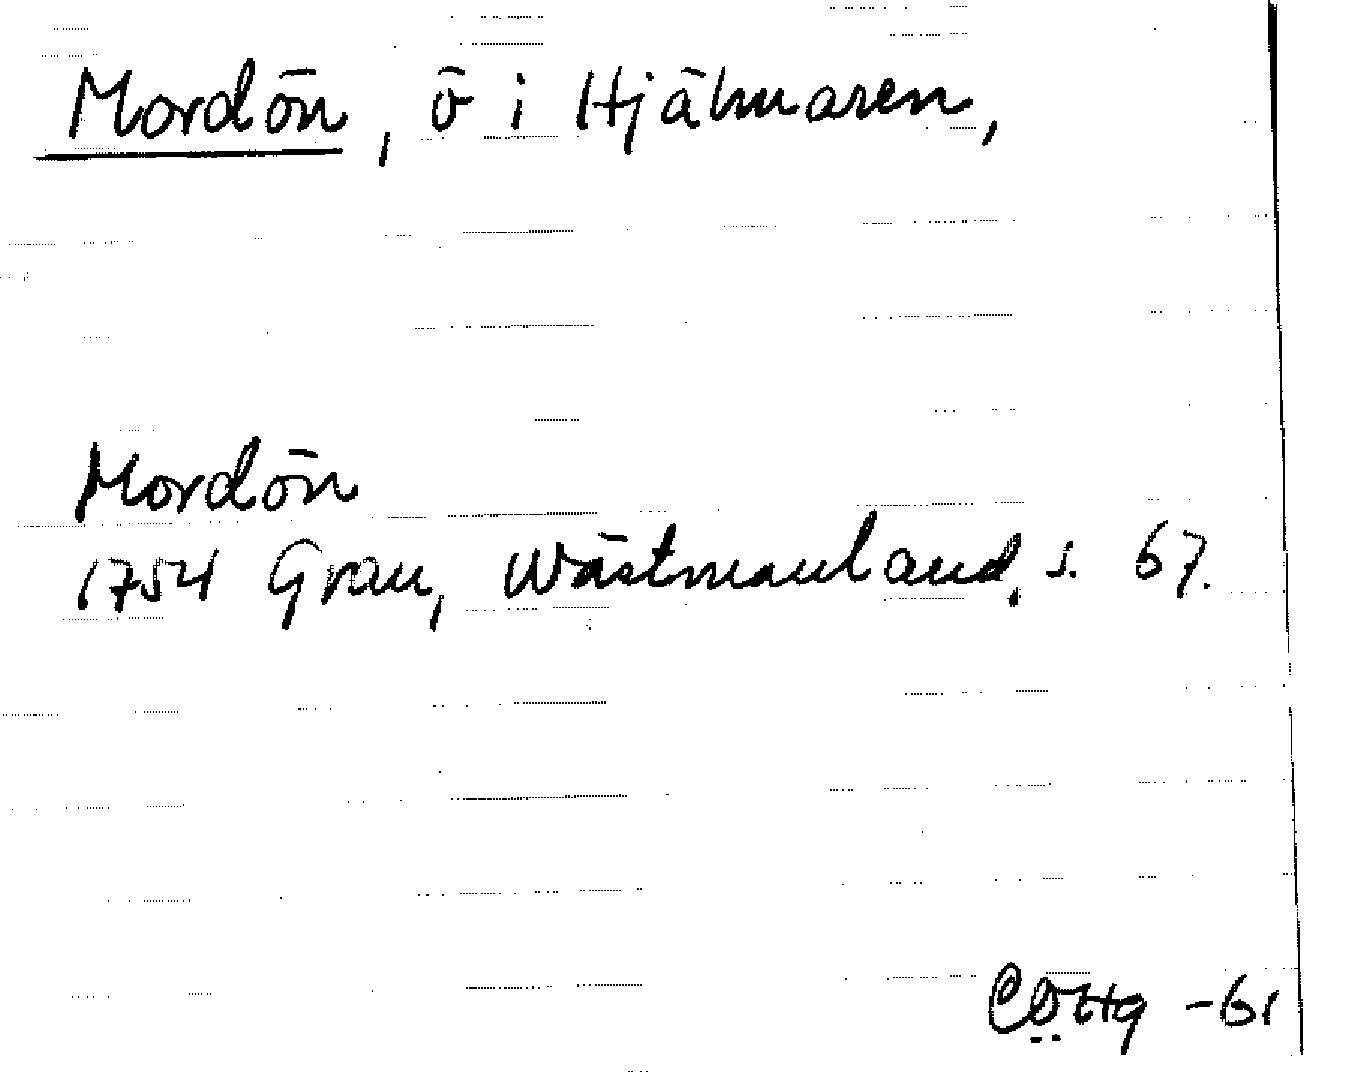 Mordön, ö i Hjälmaren,
Mordön
1754 Grau, Wästmanland, s. 67.